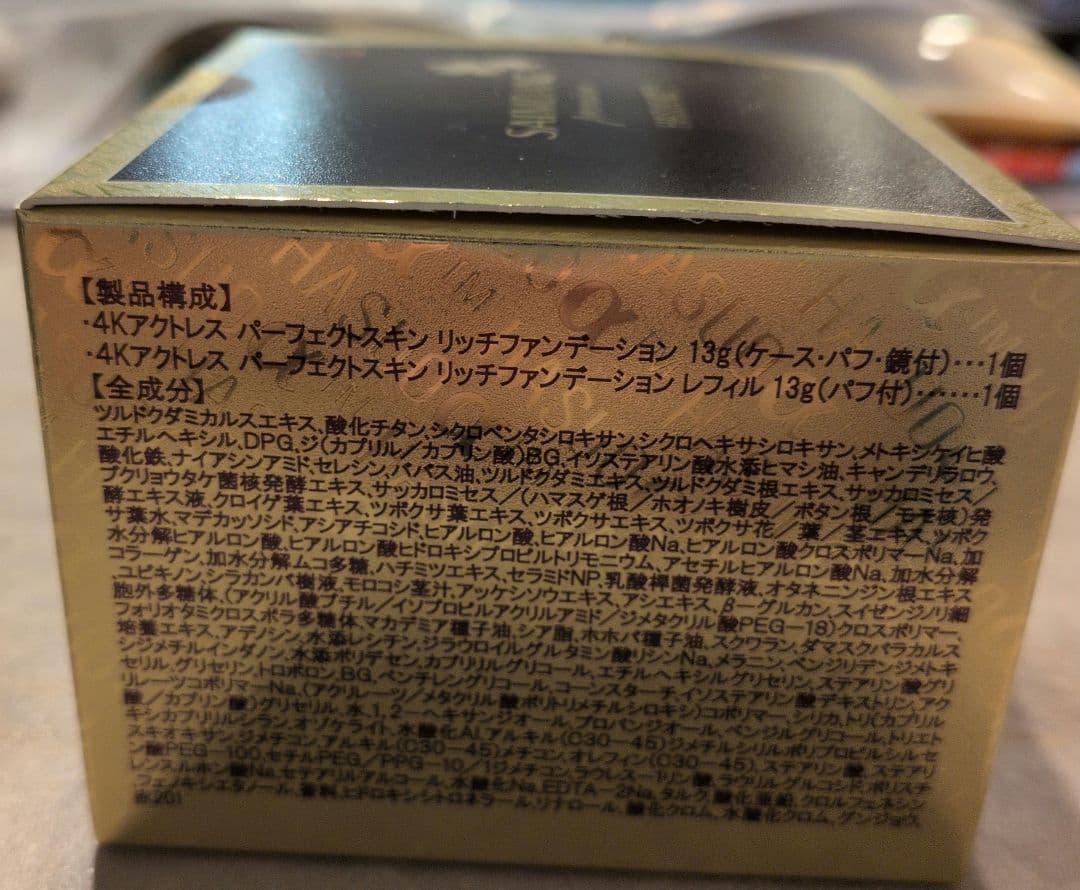 【製品構成】
・4Kアクトレス パーフェクトスキン リッチファンデーション 13g(ケース・パフ・鏡付)…1個
・4Kアクトレス パーフェクトスキン リッチファンデーション レフィル 13g(パフ付)……1個
【全成分】
ツルドクダミカルスエキス、酸化チタン、シクロペンタシロキサン、シクロヘキサシロキサン、メトキシケイヒ酸
エチルヘキシル、DPG、ジ(カプリル/カプリン酸)BG、イソステアリン酸水添ヒマシ油、キャンデリラロウ、
酸化鉄、ナイアシンアミド、セレシン、ババス油、ツルドクダミエキス、ツルドクダミ根エキス、サッカロミセス/
ブクリョウタケ菌核発酵エキス、サッカロミセス/(ハマスゲ根/ホオノキ樹皮/ボタン根/モモ核)発
酵エキス液、クロイゲ葉エキス、ツボクサ葉エキス、ツボクサエキス、ツボクサ花/葉/茎エキス、ツボク
サ葉水、マデカッソシド、アシアチコシド、ヒアルロン酸、ヒアルロン酸Na、ヒアルロン酸クロスポリマーNa、加
水分解ヒアルロン酸、ヒアルロン酸ヒドロキシプロピルトリモニウム、アセチルヒアルロン酸Na、加水分解
コラーゲン、加水分解ムコ多糖、ハチミツエキス、セラミドNP、乳酸桿菌発酵液、オタネニンジン根エキス、
ユビキノン、シラカンバ樹液、モロコシ茎汁、アッケシソウエキス、アシエキス、β-グルカン、スイゼンジノリ細
胞外多糖体、(アクリル酸ブチル/イソプロピルアクリルアミド/ジメタクリル酸PEG-18)クロスポリマー、
フォリオタミクロスポラ多糖体、マカデミア種子油、シア脂、ホホバ種子油、スクワラン、ダマスクバラカルス
培養エキス、アデノシン、水添レシチン、ジラウロイルグルタミン酸リシンNa、メラニン、ベンジリデンジメトキ
シジメチルインダノン、水添ポリデセン、カプリリルグリコール、エチルヘキシルグリセリン、ステアリン酸グリ
セリル、グリセリン、トロポロン、BG、ペンチレングリコール、コーンスターチ、イソステアリン酸デキストリン、アク
リレーツコポリマーNa、(アクリレーツ/メタクリル酸ポリトリメチルシロキシ)コポリマー、シリカ、トリ(カプリル
酸/カプリン酸)グリセリル、水、1,2-ヘキサンジオール、プロパンジオール、ベンジルグリコール、トリエト
キシカプリリルシラン、オゾケライト、水酸化Al、アルキル(C30-45)ジメチルシリルポリプロピルシルセ
スキオキサン、ジメチコン、アルキル(C30-45)メチコン、オレフィン(C30-45)、ステアリン酸、ステアリ
ン酸PEG-100、セチルPEG/PPG-10/1ジメチコン、ラウレス-1リン酸、ラウリルグルコシド、ポリスチ
レンスルホン酸Na、セテアリルアルコール、水酸化Na、EDTA-2Na、タルク、酸化亜鉛、クロルフェネシン、
フェノキシエタノール、香料、ヒドロキシシトロネラール、リナロール、酸化クロム、水酸化クロム、グンジョウ、
赤201